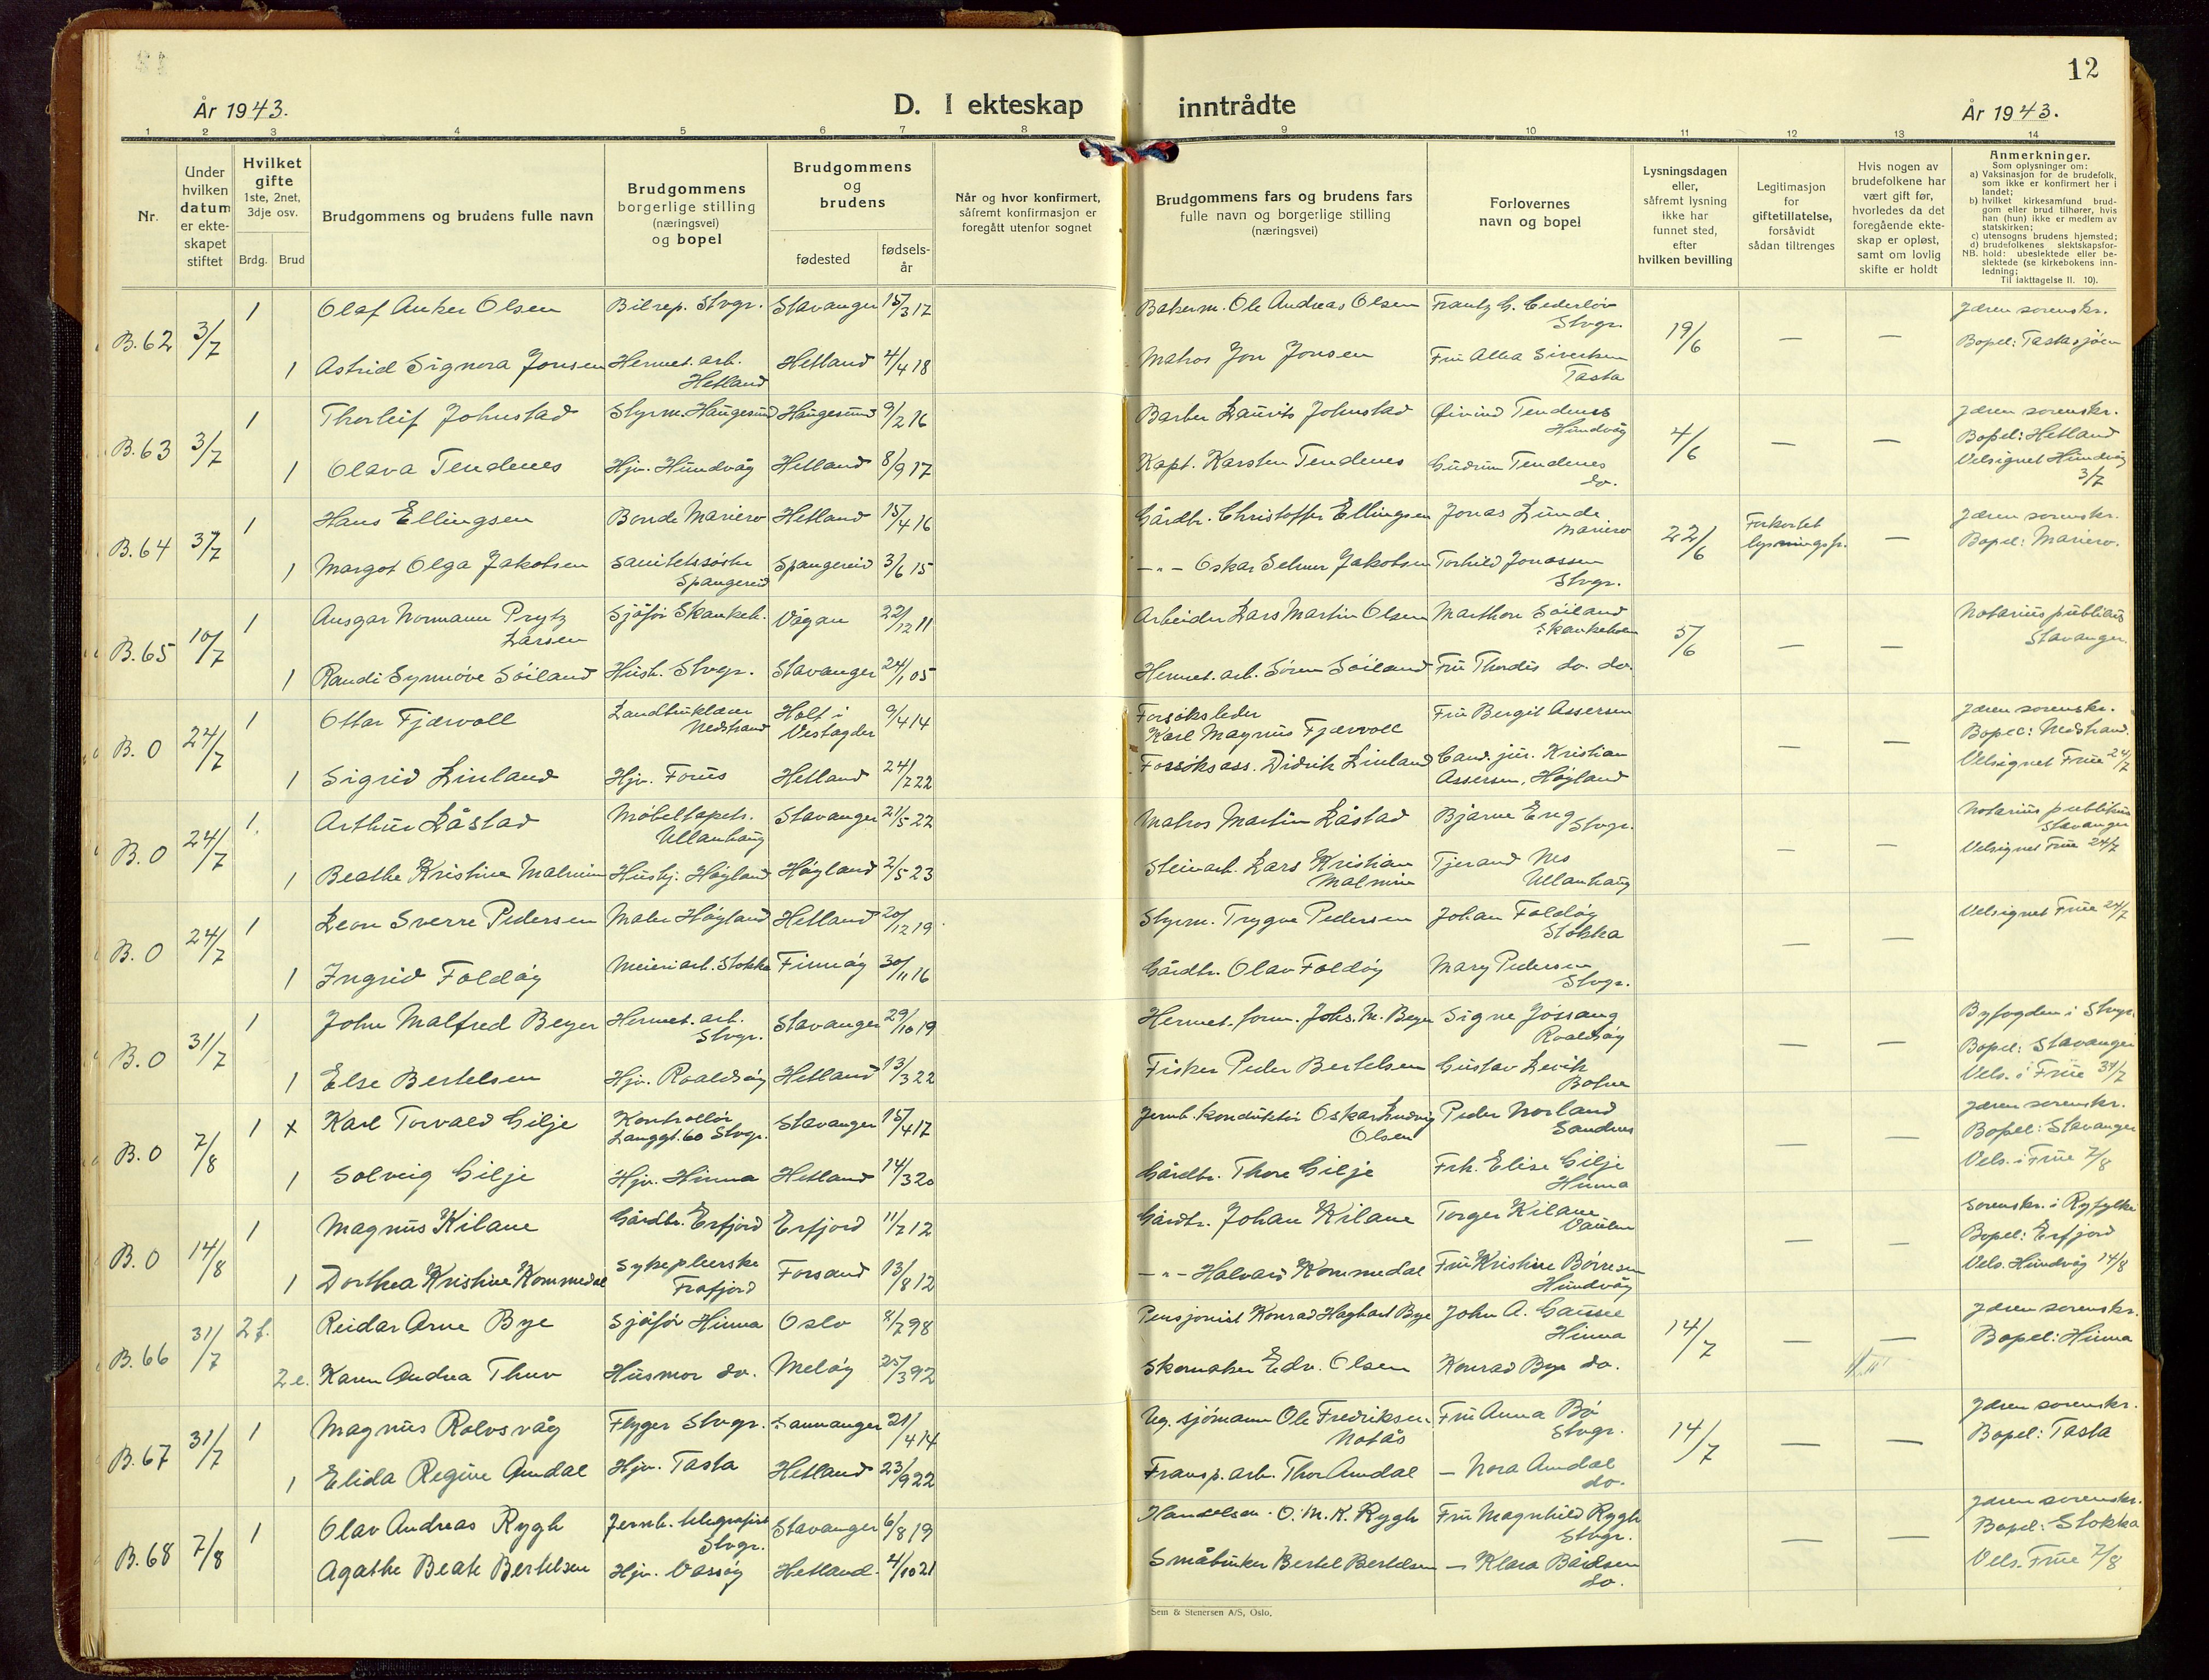 12
År 1943.
D. I ekteskap inntrådte
År 1943.
1 2 3 4 5 6 7 8 9 10 11 12 13 14
Nr.
Under hvilken datum er ekteskapet stiftet
Hvilket gifte 1ste, 2net, 3dje osv.
Brdg. Brud
Brudgommens og brudens fulle navn
Brudgommens borgerlige stilling (næringsvei) og bopel
Brudgommens og brudens
fødested
fødsels-år
Når og hvor konfirmert, såfremt konfirmasjon er foregått utenfor sognet
Brudgommens fars og brudens fars fulle navn og borgerlige stilling (næringsvei)
Forlovernes navn og bopel
Lysningsdagen eller, såfremt lysning ikke har funnet sted, efter hvilken bevilling
Legitimasjon for giftetillatelse, forsåvidt sådan tiltrenges
Hvis nogen av brudefolkene har vært gift før, hvorledes da det foregående ekteskap er opløst, samt om lovlig skifte er holdt
Anmerkninger.
Som oplysninger om:
a) Vaksinasjon for de brudefolk, som ikke er konfirmert her i landet;
b) hvilket kirkesamfund brudgom eller brud tilhører, hvis han (hun) ikke er medlem av statskirken;
c) utensogns brudens hjemsted;
d) brudefolkenes slektskapsforhold: ubeslektede eller beslektede (se kirkebokens innledning;
NB. Til iakttagelse II. 10).
B.62 3/7 1 Olaf Anker Olsen Bilrep. Stvgr. Stavanger 15/3 17 Bakerm. Ole Andreas Olsen Frantz G. Cederløv Stvgr. 19/6 — — Jæren sorenskr.
1 Astrid Signora Jonsen Hermet. arb. Hetland Hetland 4/4 18 Matros Jon Jonsen Fru Alba Sivertsen Tasta Bopel: Tastasjøen
B.63 3/7 1 Thorleif Johnstad Styrm. Haugesund Haugesund 9/2 16 Barber Laurits Johnstad Øivind Tendenes Hundvåg 4/6 — — Jæren sorenskr. Bopel: Hetland
1 Olava Tendenes Hjv. Hundvåg Hetland 8/9 17 Kapt. Karsten Tendenes Gudrun Tendenes do. Velsignet Hundvåg 3/7
B.64 3/7 1 Hans Ellingsen Bonde Mariero Hetland 15/4 16 Gårdbr. Christoffer Ellingsen Jonas Lunde Mariero 22/6 Forkortet lysningsfr. — Jæren sorenskr.
1 Margot Olga Jakobsen Sanitetssøster Spangereid Spangereid 3/6 15 —„— Oskar Selmer Jakobsen Torhild Jonassen Stvgr. Bopel: Mariero.
B.65 10/7 1 Ansgar Normann Prytz Larsen Sjåfør Skankeh. Vågan 22/12 11 Arbeider Lars Martin Olsen Marthon Søiland Skankeholm 5/6 — — Notarius publicus Stavanger
1 Randi Synnøve Søiland Hush. Stvgr. Stavanger 24/1 05 Hermet. arb. Søren Søiland Fru Thordis do. do.
B. 0 24/7 1 Ottar Fjærvoll Landbruklærer Nedstrand Holt i Vestagder 9/4 14 Forsøksleder Karl Magnus Fjærvoll Fru Bergit Assersen — — Jæren sorenskr. Bopel: Nedstrand.
1 Sigrid Linland Hjv. Forus Hetland 24/7 22 Forsøksass. Didrik Linland Cand. jur. Kristian Assersen, Høyland Velsignet Frue 24/7
B. 0 24/7 1 Arthur Låstad Møbeltapets. Ullanhaug Stavanger 21/5 22 Matros Martin Låstad Bjarne Eng Stvgr. — — Notarius publikus Stavanger
1 Beathe Kristine Malmin Hushj. Høyland Høyland 2/5 23 Steinarb. Lars Kristian Malmin Tjerand Nes Ullanhaug Velsignet Frue 24/7
B. 0 24/7 1 Leon Sverre Pedersen Maler Høyland Hetland 20/12 19 Styrm. Trygve Pedersen Johan Foldøy Stokka — — Velsignet Frue 24/7
1 Ingrid Foldøy Meieriarb. Stokka Finnøy 30/11 16 Gårdbr. Olav Foldøy Mary Pedersen Stvgr.
B. 0 31/7 1 John Malfred Beyer Hermet. arb. Stvgr. Stavanger 29/10 19 Hermet. form. Johs. M. Beyer Signe Jøssang Roaldsøy — — Byfogden i Stvgr. Bopel: Stavanger
1 Else Bertelsen Hjv. Roaldsøy Hetland 13/3 22 Fisker Peder Bertelsen Gustav Levik Vels. i Frue 31/7
B. 0 7/8 1 x Karl Torvald Gilje Kontrollør Langgt. 60 Stvgr. Stavanger 15/4 17 Jernb. konduktør Oskar Ludvig Olsen Peder Norland Sandnes — — Jæren sorenskr. Bopel: Stavanger
1 Solveig Gilje Hjv. Hinna Hetland 14/3 20 Gårdbr. Thore Gilje Frk. Elise Gilje Hinna Vels. i Frue 7/8
B. 0 14/8 1 Magnus Kilane Gårdbr. Erfjord Erfjord 11/7 12 Gårdbr. Johan Kilane Torger Kilane Vaulen — — Sorenskr. i Ryfylke Bopel: Erfjord
1 Dorthea Kristine Kommedal Sykepleierske Frafjord Forsand 13/8 12 —„— Halvard Kommedal Fru Kristine Børresen Hundvåg Vels. Hundvåg 14/8
B.66 31/7 2 f. Reidar Arne Bye Sjåfør Hinna Oslo 8/7 98 Pensjonist Konrad Hagbart Bye John A. Gausel Hinna 14/7 — — Jæren sorenskr.
2 e. Karen Andrea Thuv Husmor do. Meløy 25/3 92 Skomaker Edv. Olsen Konrad Bye do. Bopel: Hinna
B.67 31/7 1 Magnus Rolvsvåg Flyger Stvgr. Samnanger 21/4 14 Ug. sjømann Ole Fredriksen Notås Fru Anna Bø Stvgr. 14/7 — — Jæren sorenskr.
1 Elida Regine Amdal Hjv. Tasta Hetland 23/9 22 Transp. arb. Thor Amdal — Nora Amdal do. Bopel: Tasta
B.68 7/8 1 Olav Andreas Rygh Jernb. telegrafist Stvgr. Stavanger 6/8 19 Handelsm. O. M. K. Rygh Fru Magnhild Rygh Stvgr. — — Jæren sorenskr. Bopel: Stokka
Agathe Beate Bertelsen Hjv. Vassøy Hetland. 4/10 21 Småbruker Bertel Bertelsen — Klara Bårdsen do. Vels. Frue 7/8
Sem & Stenersen A/S, Oslo.